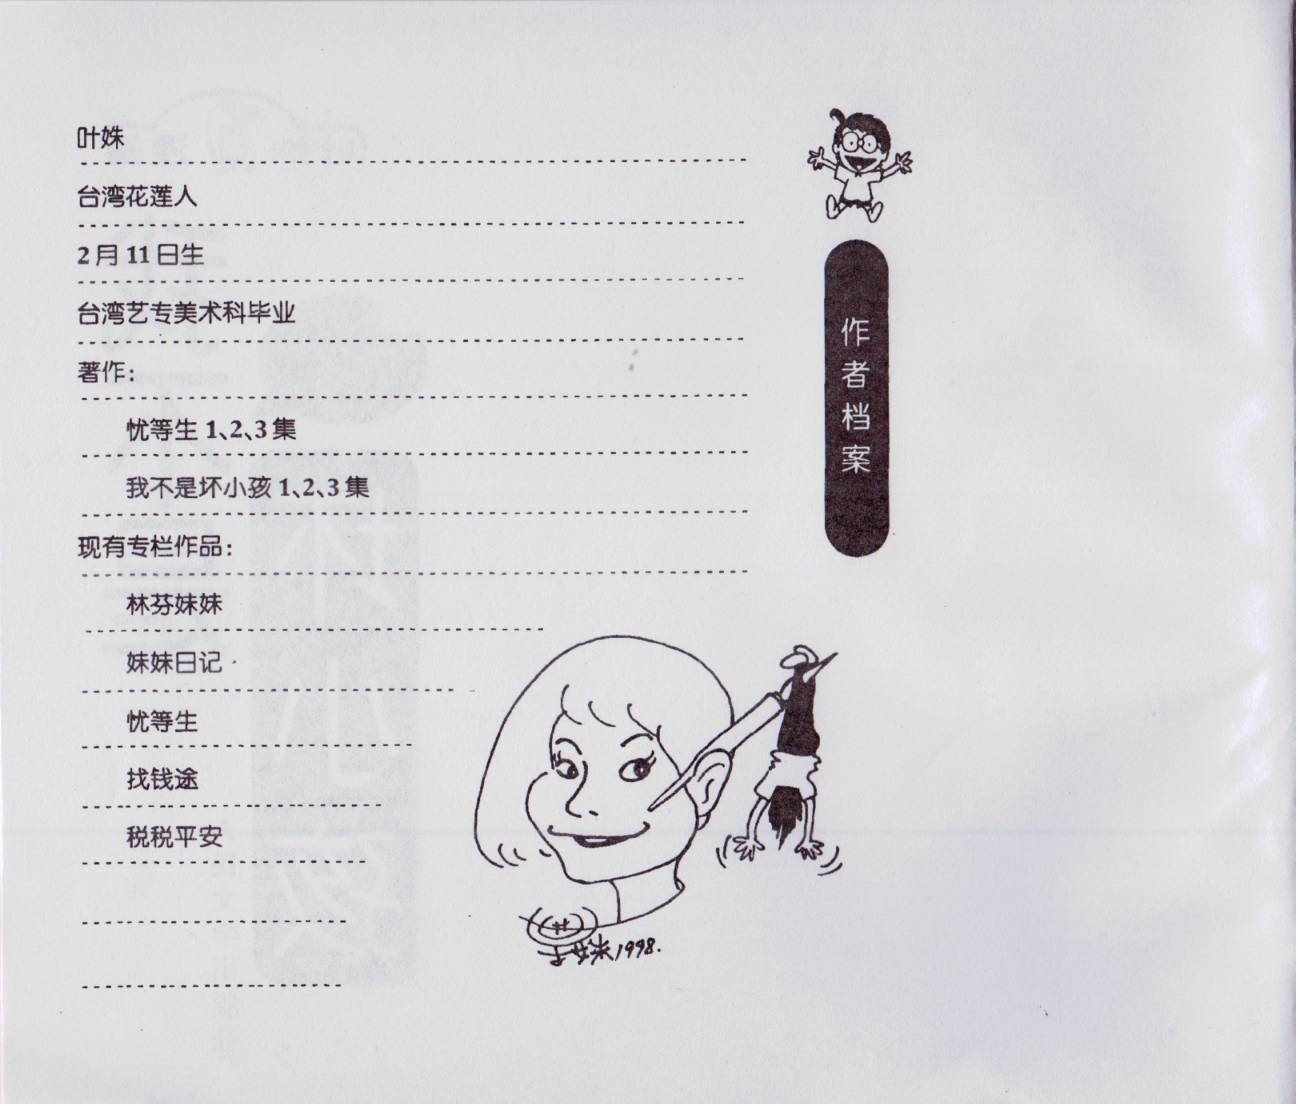 作者档案
叶姝
台湾花莲人
2月11日生
台湾艺专美术科毕业
著作：
忧等生1、2、3集
我不是坏小孩1、2、3集
现有专栏作品：
林芬妹妹
妹妹日记
忧等生
找钱途
税税平安
1998.